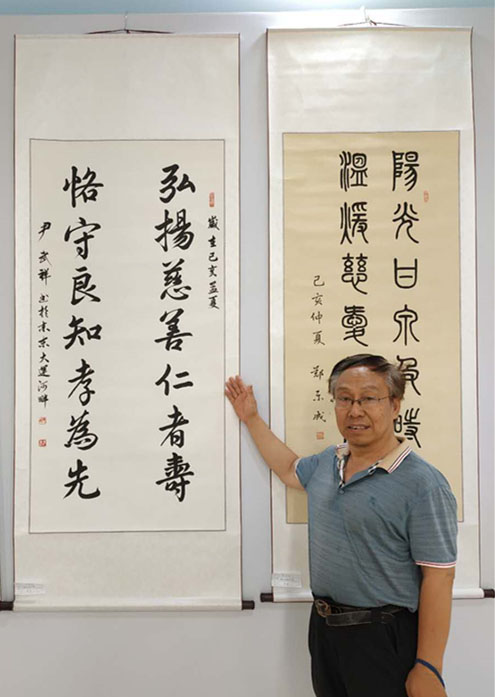 陽光甘泉及時
溫煖慈愛
己亥仲夏 鄭东成
歲在己亥孟夏
弘揚慈善仁者壽
恪守良知孝為先
尹武祥书於京东大運河畔